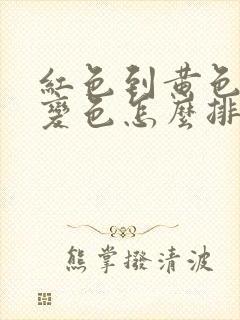 紅色到黃色
變色怎麼排
熊掌撥清波